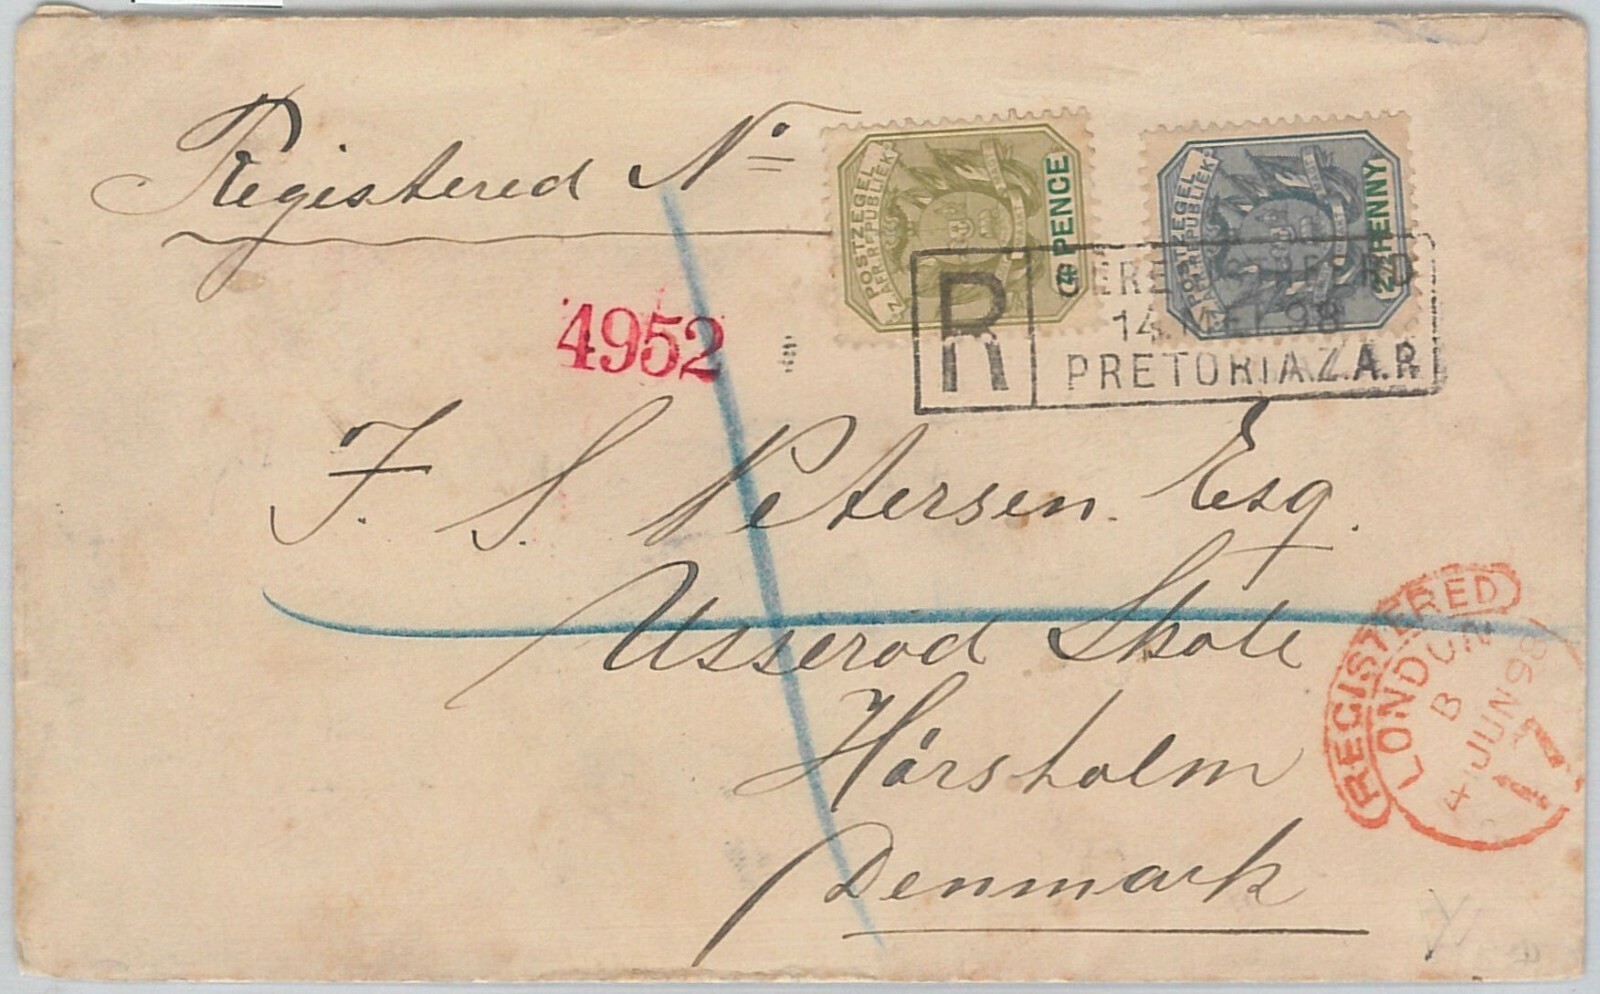 Registered No
POSTZEGEL
Z. AFR. REPUBLIEK
4 PENCE
POSTZEGEL
Z. AFR. REPUBLIEK
2½ PENNY
4952
R
GEREGISTREERD
14 MEI 98
PRETORIA Z.A.R.
F. S. Petersen. Esq.
Usserod Skole
Hörsholm
Denmark
REGISTERED
LONDON
B
4 JUN 98
17